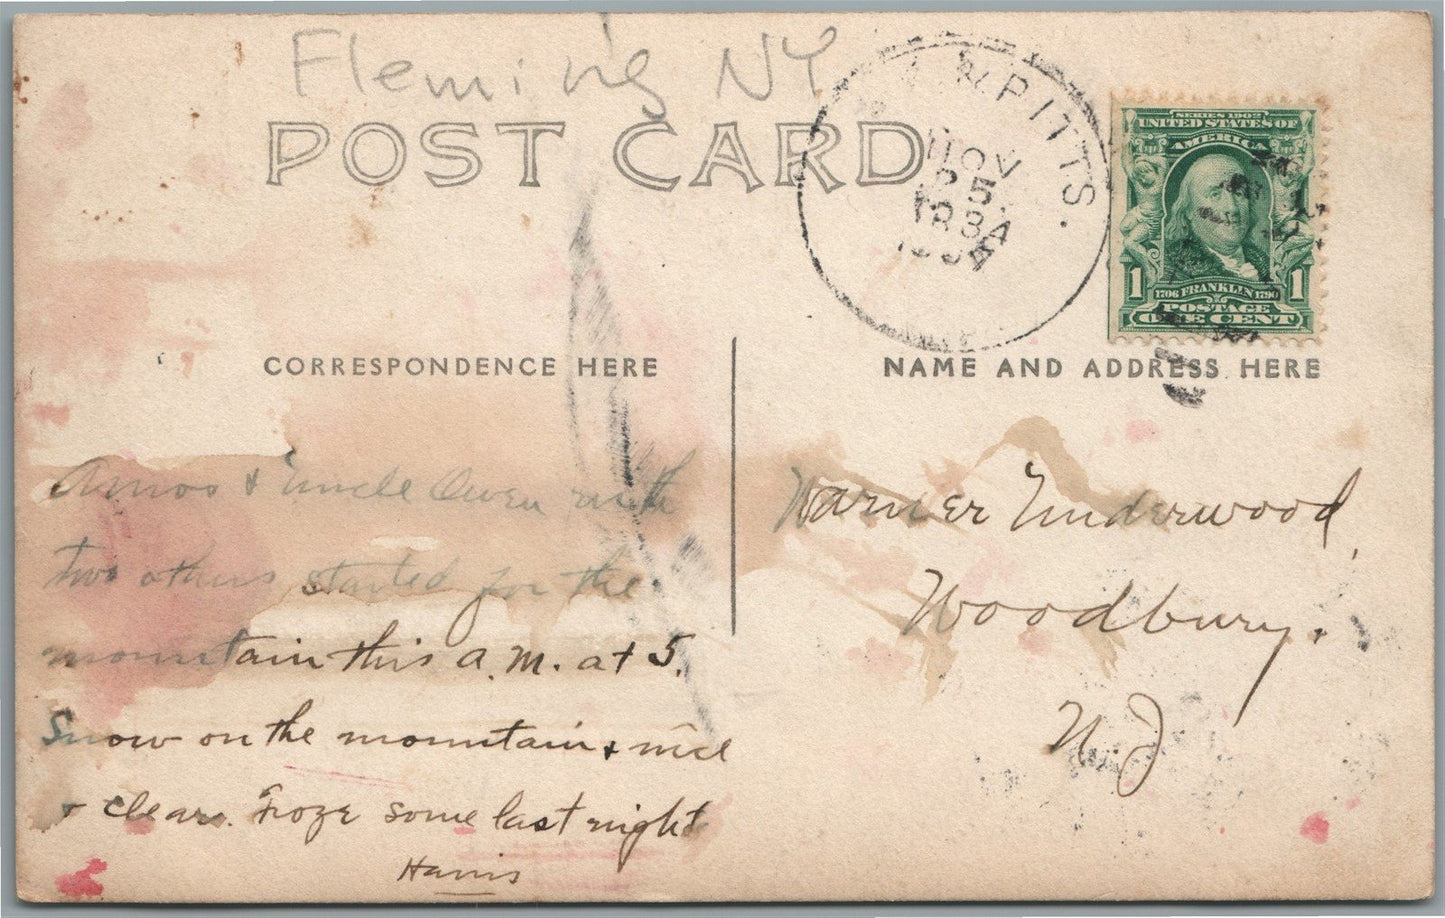 Fleming NY
POST CARD
& W. PITTS.
NOV
25
1984
SERIES 1902
UNITED STATES OF
AMERICA
1 1706 FRANKLIN 1790 1
POSTAGE
ONE CENT
CORRESPONDENCE HERE
NAME AND ADDRESS HERE
Amos & Uncle Owen with
two others started for the
mountain this a.m. at 5.
Snow on the mountain & nice
& clear. Froze some last night
Harris
Warner Underwood,
Woodbury.
N.J